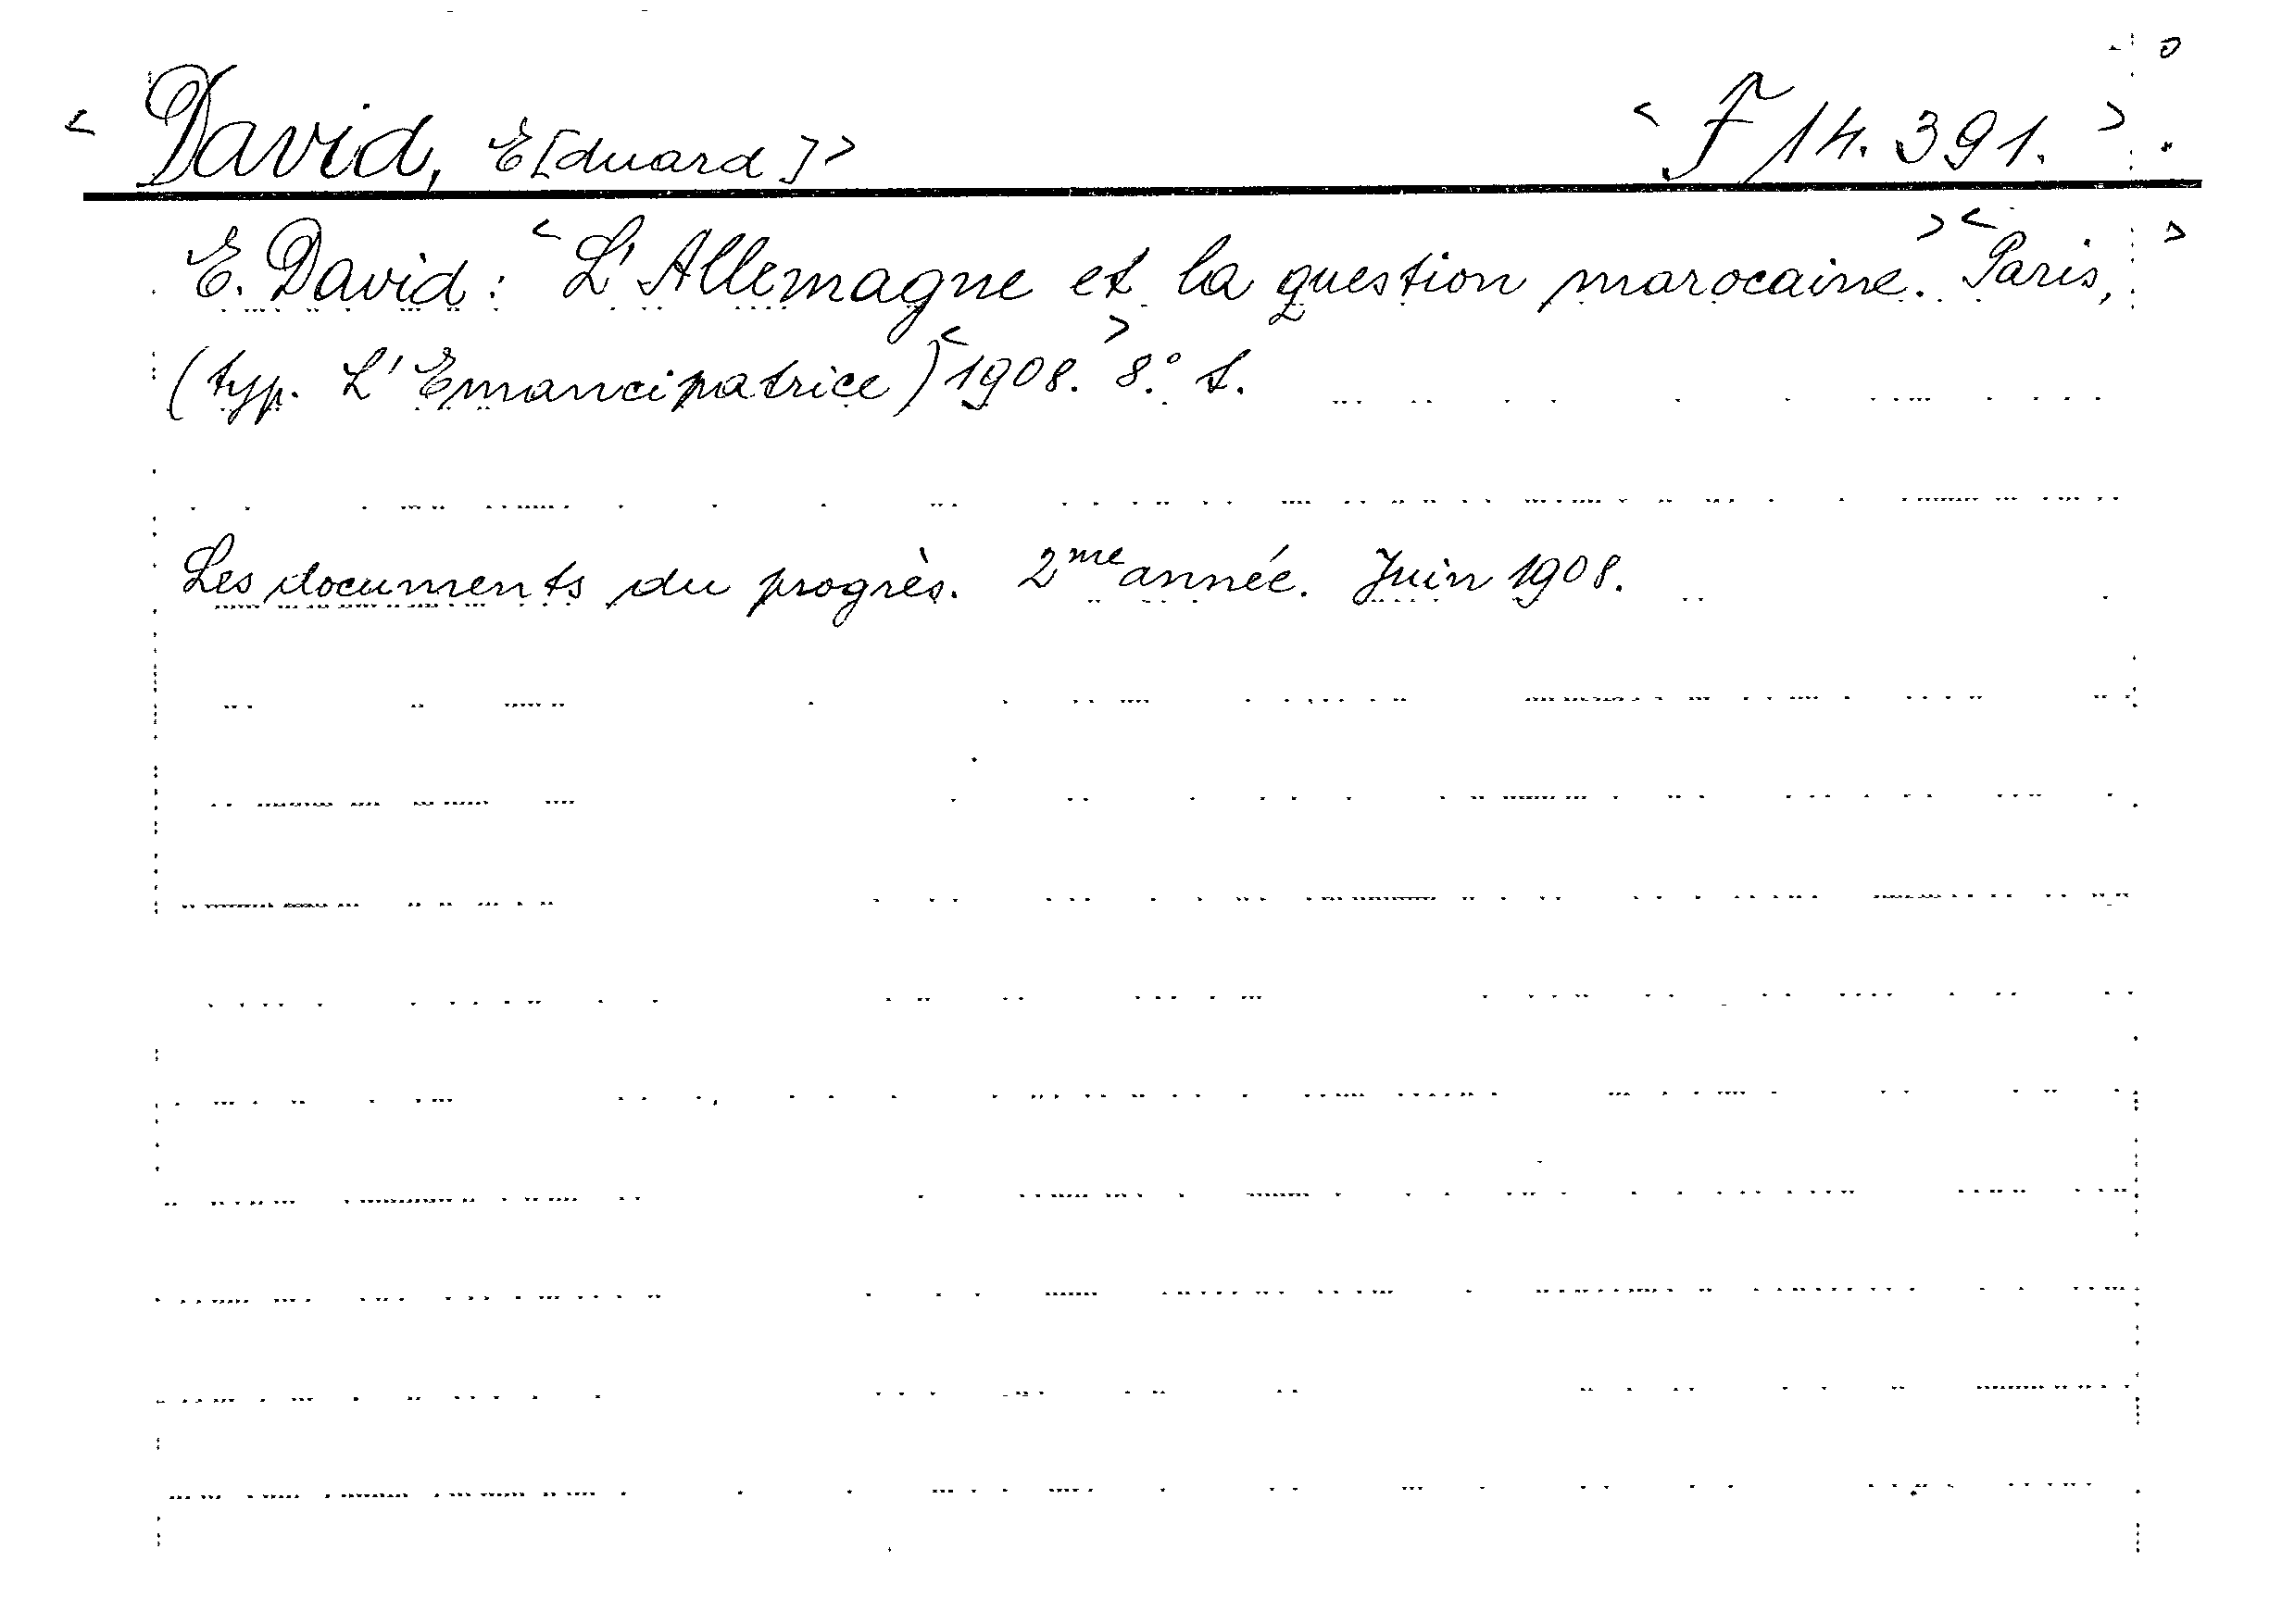 < David, E[duard] > < F 14.391. >
E. David: < L'Allemagne et la question marocaine. > < Paris, >
(typ. L'Emancipatrice) < 1908. > 8.° S.
Les documents du progrès. 2me année. Juin 1908.